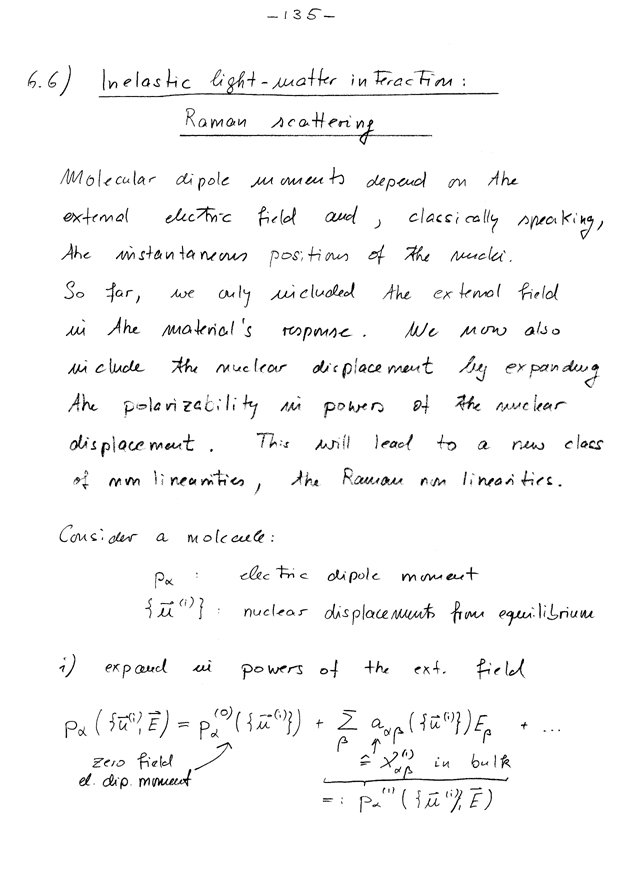 -135-
6.6) Inelastic light-matter interaction:
Raman scattering
Molecular dipole moments depend on the
external electric field and, classically speaking,
the instantaneous positions of the nuclei.
So far, we only included the external field
in the material's response. We now also
include the nuclear displacement by expanding
the polarizability in powers of the nuclear
displacement. This will lead to a new class
of nonlinearities, the Raman nonlinearities.
Consider a molecule:
pα : electric dipole moment
{u⃗⁽ⁱ⁾} : nuclear displacements from equilibrium
i) expand in powers of the ext. field
pα ({u⃗⁽ⁱ⁾}, E⃗) = pα⁽⁰⁾({u⃗⁽ⁱ⁾}) + Σβ aαβ({u⃗⁽ⁱ⁾})Eβ + ...
zero field
el. dip. moment
≙ χαβ⁽¹⁾ in bulk
=: pα⁽¹⁾({u⃗⁽ⁱ⁾}, E⃗)